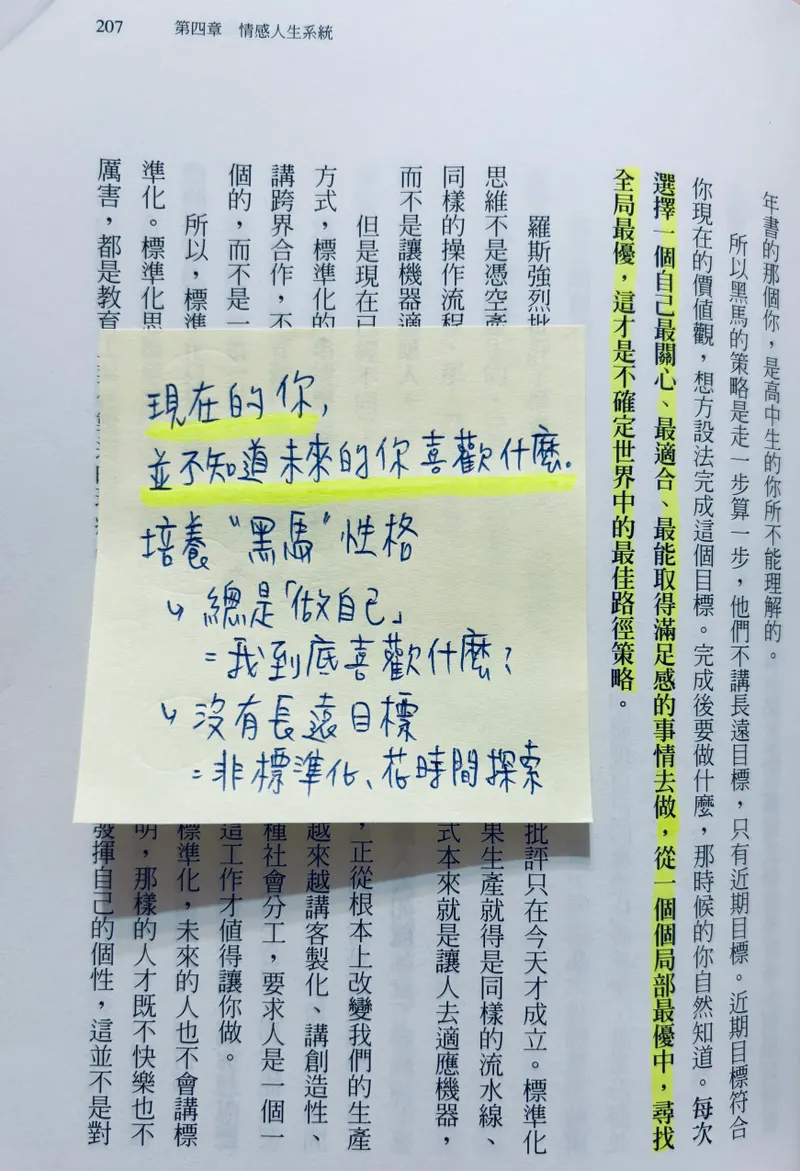 207
第四章 情感人生系統
年書的那個你，是高中生的你所不能理解的。
所以黑馬的策略是走一步算一步，他們不講長遠目標，只有近期目標。近期目標符合
你現在的價值觀，想方設法完成這個目標。完成後要做什麼，那時候的你自然知道。每次
選擇一個自己最關心、最適合、最能取得滿足感的事情去做，從一個個局部最優中，尋找
全局最優，這才是不確定世界中的最佳路徑策略。
羅斯強烈批
批評只在今天才成立。標準化
思維不是憑空產
果生產就得是同樣的流水線、
同樣的操作流程
式本來就是讓人去適應機器，
而不是讓機器適
但是現在已
，正從根本上改變我們的生產
方式，標準化的
越來越講客製化、講創造性、
講跨界合作，不
種社會分工，要求人是一個一
個的，而不是一
這工作才值得讓你做。
所以，標準
標準化，未來的人也不會講標
準化。標準化思
明，那樣的人才既不快樂也不
厲害，都是教育
發揮自己的個性，這並不是對
現在的你，
並不知道未來的你喜歡什麼。
培養“黑馬”性格
↳ 總是「做自己」
=我到底喜歡什麼？
↳ 沒有長遠目標
=非標準化、花時間探索